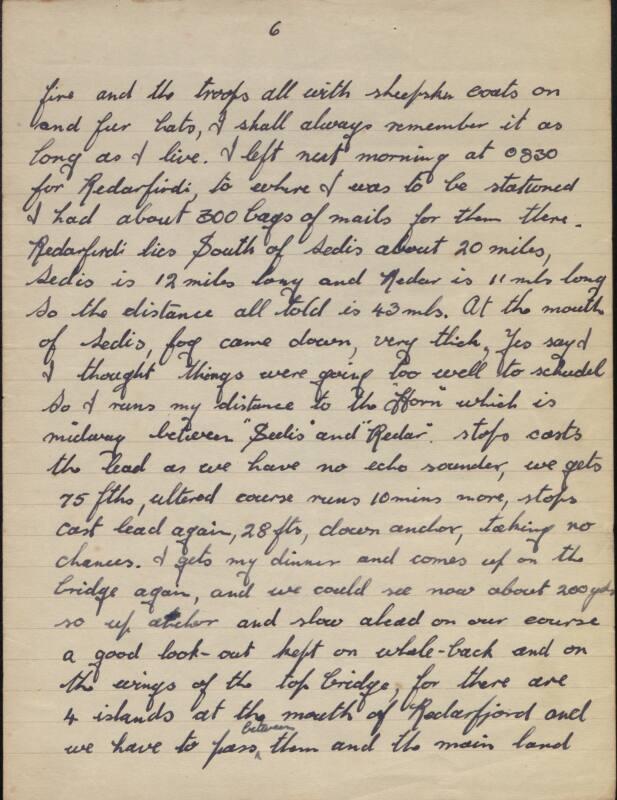 6
fire and the troops all with sheepskin coats on
and fur hats, I shall always remember it as
long as I live. I left next morning at 0830
for Redarfirdi, to where I was to be stationed
I had about 300 bags of mails for them there.
Redarfirdi lies South of Sedis about 20 miles,
Sedis is 12 miles long and Redar is 11 mls long
So the distance all told is 43 mls. At the mouth
of Sedis, fog came down, very thick, Yes say I
I thought things were going too well to schudel
So I runs my distance to the "Horn" which is
midway between "Sedis" and "Redar". stops casts
the lead as we have no echo sounder, we gets
75 fths, altered course runs 10 mins more, stops
cast lead again, 28 fts, down anchor, taking no
chances. I gets my dinner and comes up on the
bridge again, and we could see now about 200 yds
so up anchor and slow ahead on our course
a good look-out kept on whale-back and on
the wings of the top bridge, for there are
4 islands at the mouth of Redarfjord and
we have to pass between them and the main land